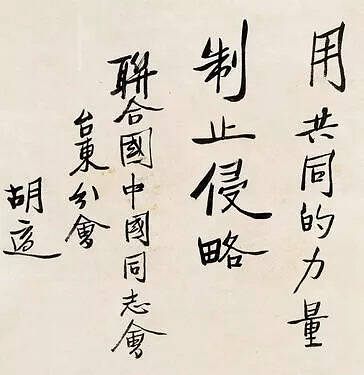 用共同的力量
制止侵略
聯合國中國同志會
台東分會
胡適